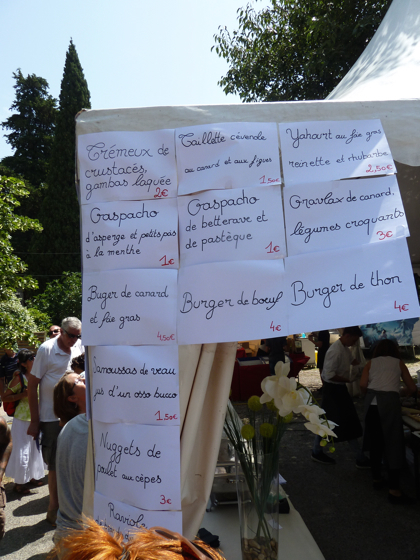 Crémeux de
crustacés,
gambas laquée
2€
Taillette cévenole
au canard et aux figues
1.50€
Yahourt au foie gras
reinette et rhubarbe
2.50€
Gaspacho
d'asperge et petits pois
à la menthe
1€
Gaspacho
de betterave et
de pastèque
1€
Gravlax de canard,
légumes croquants
3€
Buger de canard
et foie gras
4.50€
Burger de bœuf
4€
Burger de thon
4€
Samoussas de veau
jus d'un osso bucco
1.50€
Nuggets de
poulet aux cèpes
3€